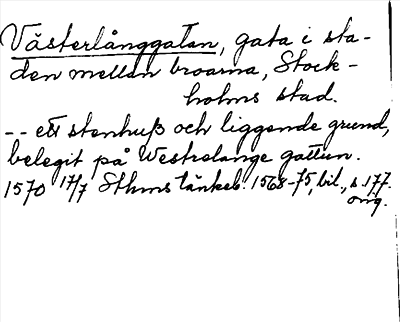 Västerlånggatan, gata i sta-
den mellan broarna, Stock-
holms stad.
-- ett stenhuß och liggende grund,
belegit på Westrelange gattun.
1570 17/7 Sthms tänkeb. 1568-75, bil., s. 177.
orig.